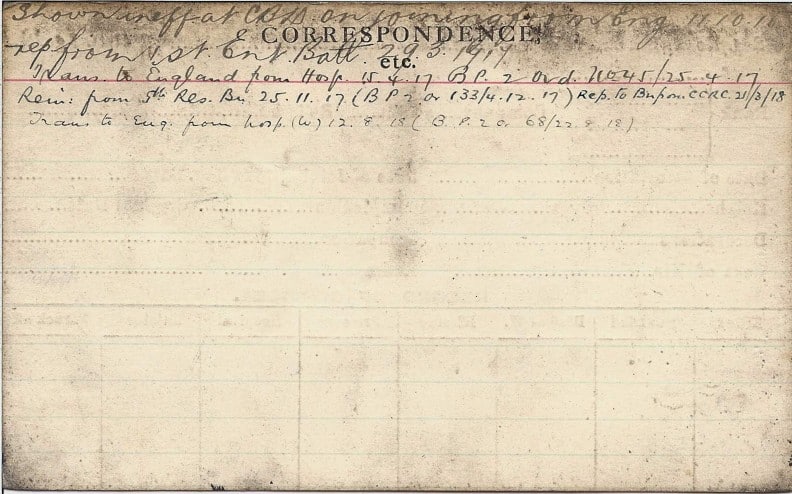 Shown ineff at CBD on joining from Eng 11.10.16
CORRESPONDENCE,
rep from 1st Ent Batt 29.3.1917
etc.
Trans. to England from Hosp. 15.4.17 B.P. 2 Ord. No 45/25.4.17
Rein: from 5th Res. Bn. 25.11.17 (B P 2 or 133/4.12.17) Rep. to Bn from CCRC. 21/3/18
Trans to Eng. from hosp. (W) 12.8.18 (B.P. 2 or 68/22.8.18)